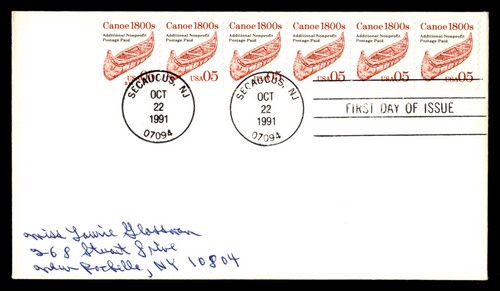 Canoe 1800s Canoe 1800s Canoe 1800s Canoe 1800s Canoe 1800s Canoe 1800s
Additional Nonprofit Additional Nonprofit Additional Nonprofit Additional Nonprofit Additional Nonprofit Additional Nonprofit
Postage Paid Postage Paid Postage Paid Postage Paid Postage Paid Postage Paid
USA 05 USA 05 USA 05 USA 05 USA 05
SECAUCUS, NJ
OCT
22
1991
07094
SECAUCUS, NJ
OCT
22
1991
07094
FIRST DAY OF ISSUE
Miss Lowie Glassman
268 Stuart Drive
New Rochelle, NY 10804